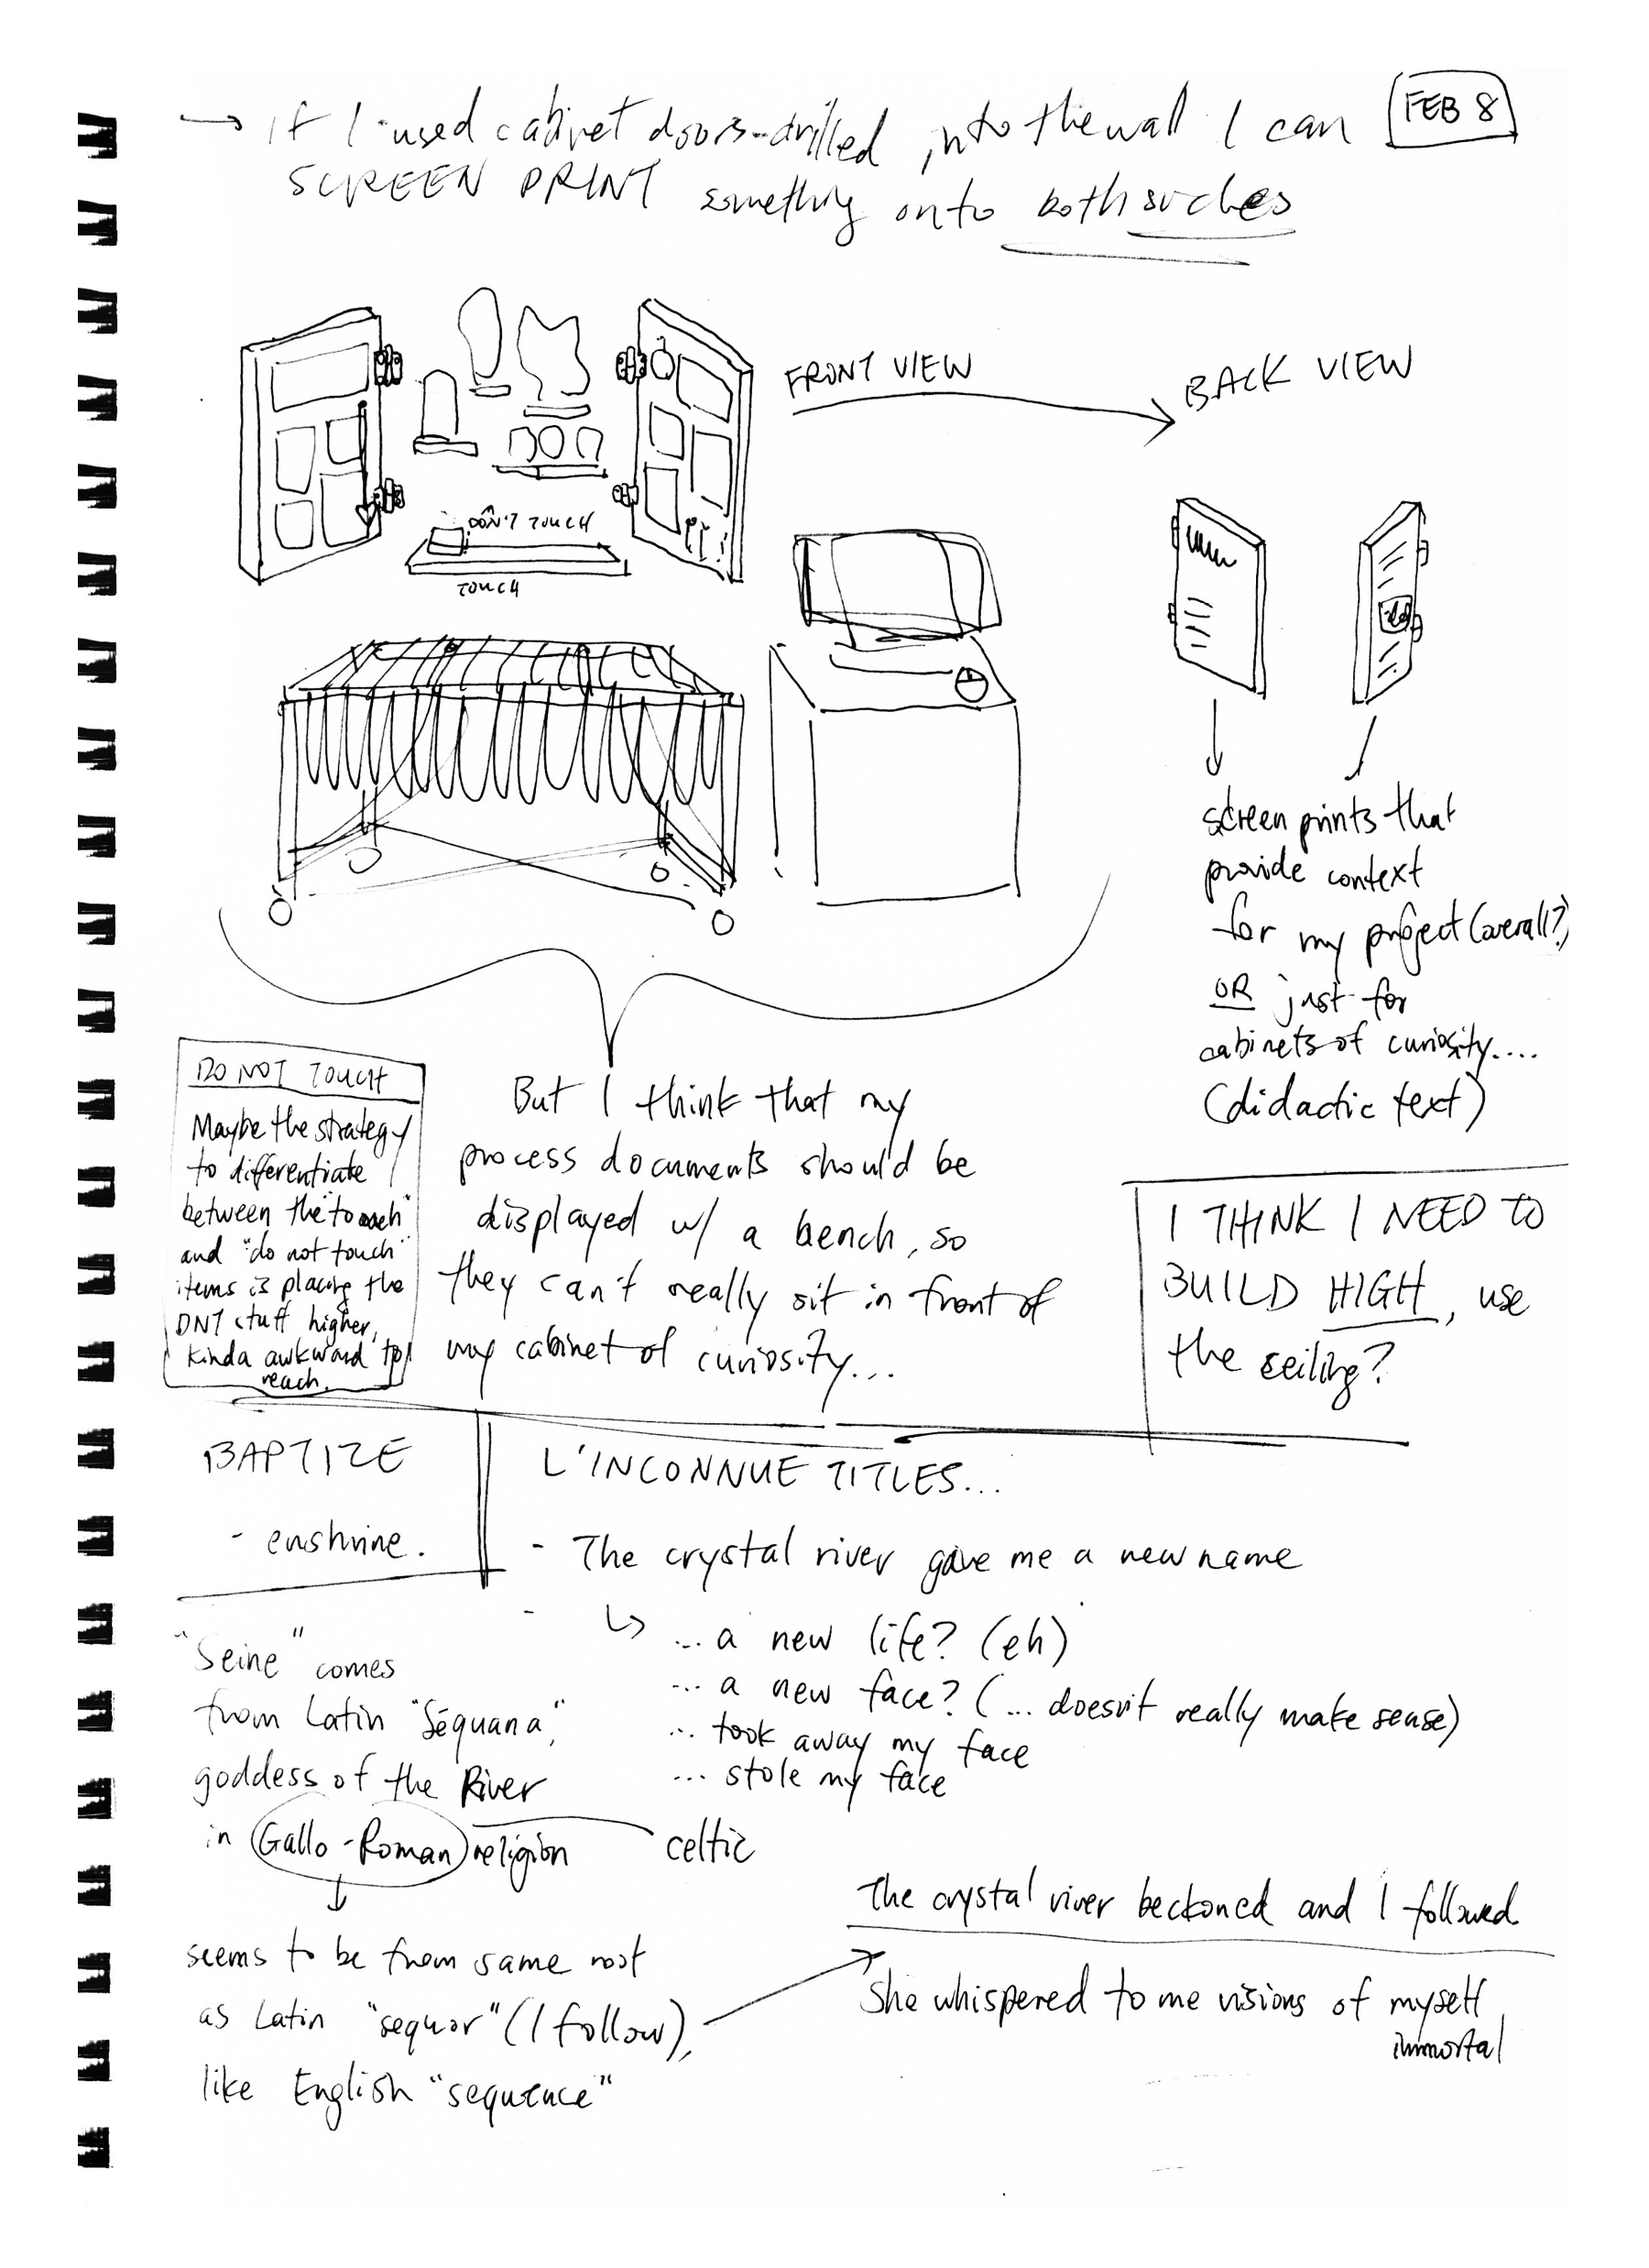 FEB 8
→ If I used cabinet doors - drilled into the wall I can
SCREEN PRINT something onto both sides
FRONT VIEW
BACK VIEW
DON'T TOUCH
TOUCH
screen prints that
provide context
for my project (overall?)
OR just for
cabinets of curiosity....
(didactic text)
DO NOT TOUCH
Maybe the strategy
to differentiate
between the "touch"
and "do not touch"
items is placing the
DNT stuff higher,
kinda awkward to
reach.
But I think that my
process documents should be
displayed w/ a bench, so
they can't really sit in front of
my cabinet of curiosity...
I THINK I NEED TO
BUILD HIGH, use
the ceiling?
BAPTIZE
- enshrine.
L'INCONNUE TITLES...
- The crystal river gave me a new name
↳ ... a new life? (eh)
... a new face? (... doesn't really make sense)
... took away my face
... stole my face
"Seine" comes
from Latin "Séquana,"
goddess of the River
in Gallo-Roman religion
celtic
seems to be from same root
as Latin "sequor" (I follow),
like English "sequence"
The crystal river beckoned and I followed
She whispered to me visions of myself
immortal